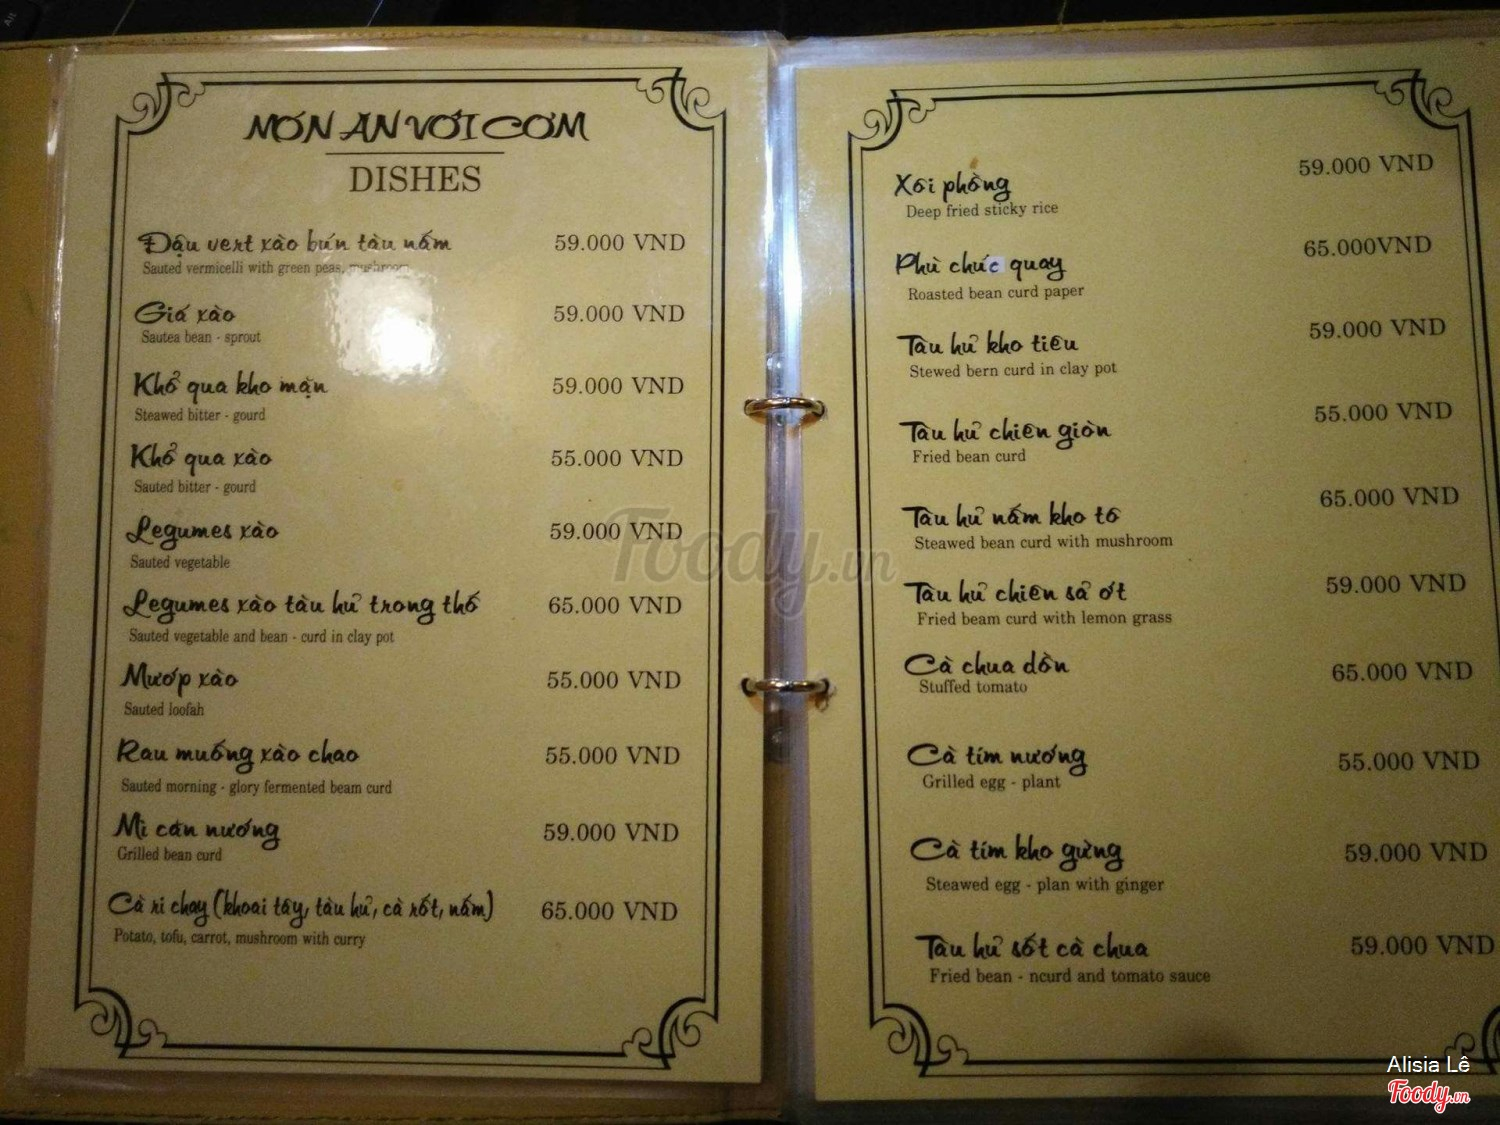 MÓN AN VỚI CƠM
DISHES
Đậu vert xào bún tàu nấm 59.000 VND
Sauted vermicelli with green peas, mushroom
Giá xào 59.000 VND
Sautea bean - sprout
Khổ qua kho mặn 59.000 VND
Steawed bitter - gourd
Khổ qua xào 55.000 VND
Sauted bitter - gourd
Legumes xào 59.000 VND
Sauted vegetable
Legumes xào tàu hủ trong thố 65.000 VND
Sauted vegetable and bean - curd in clay pot
Mướp xào 55.000 VND
Sauted loofah
Rau muống xào chao 55.000 VND
Sauted morning - glory fermented beam curd
Mì căn nướng 59.000 VND
Grilled bean curd
Cà ri chay (khoai tây, tàu hủ, cà rốt, nấm) 65.000 VND
Potato, tofu, carrot, mushroom with curry
Xôi phồng 59.000 VND
Deep fried sticky rice
Phù chúc quay 65.000VND
Roasted bean curd paper
Tàu hủ kho tiêu 59.000 VND
Stewed bern curd in clay pot
Tàu hủ chiên giòn 55.000 VND
Fried bean curd
Tàu hủ nấm kho tô 65.000 VND
Steawed bean curd with mushroom
Tàu hủ chiên sả ớt 59.000 VND
Fried beam curd with lemon grass
Cà chua dồn 65.000 VND
Stuffed tomato
Cà tím nướng 55.000 VND
Grilled egg - plant
Cà tím kho gừng 59.000 VND
Steawed egg - plan with ginger
Tàu hủ sốt cà chua 59.000 VND
Fried bean - ncurd and tomato sauce
Foody.vn
Alisia Lê
Foody.vn